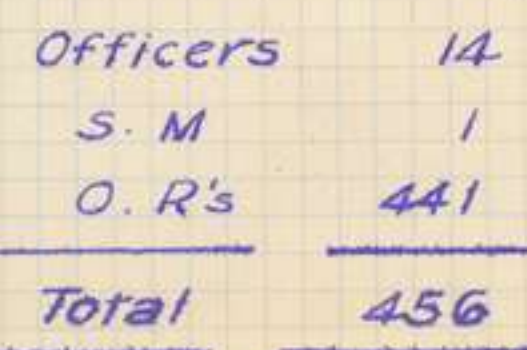 Officers 14
S. M 1
O. R's 441
Total 456